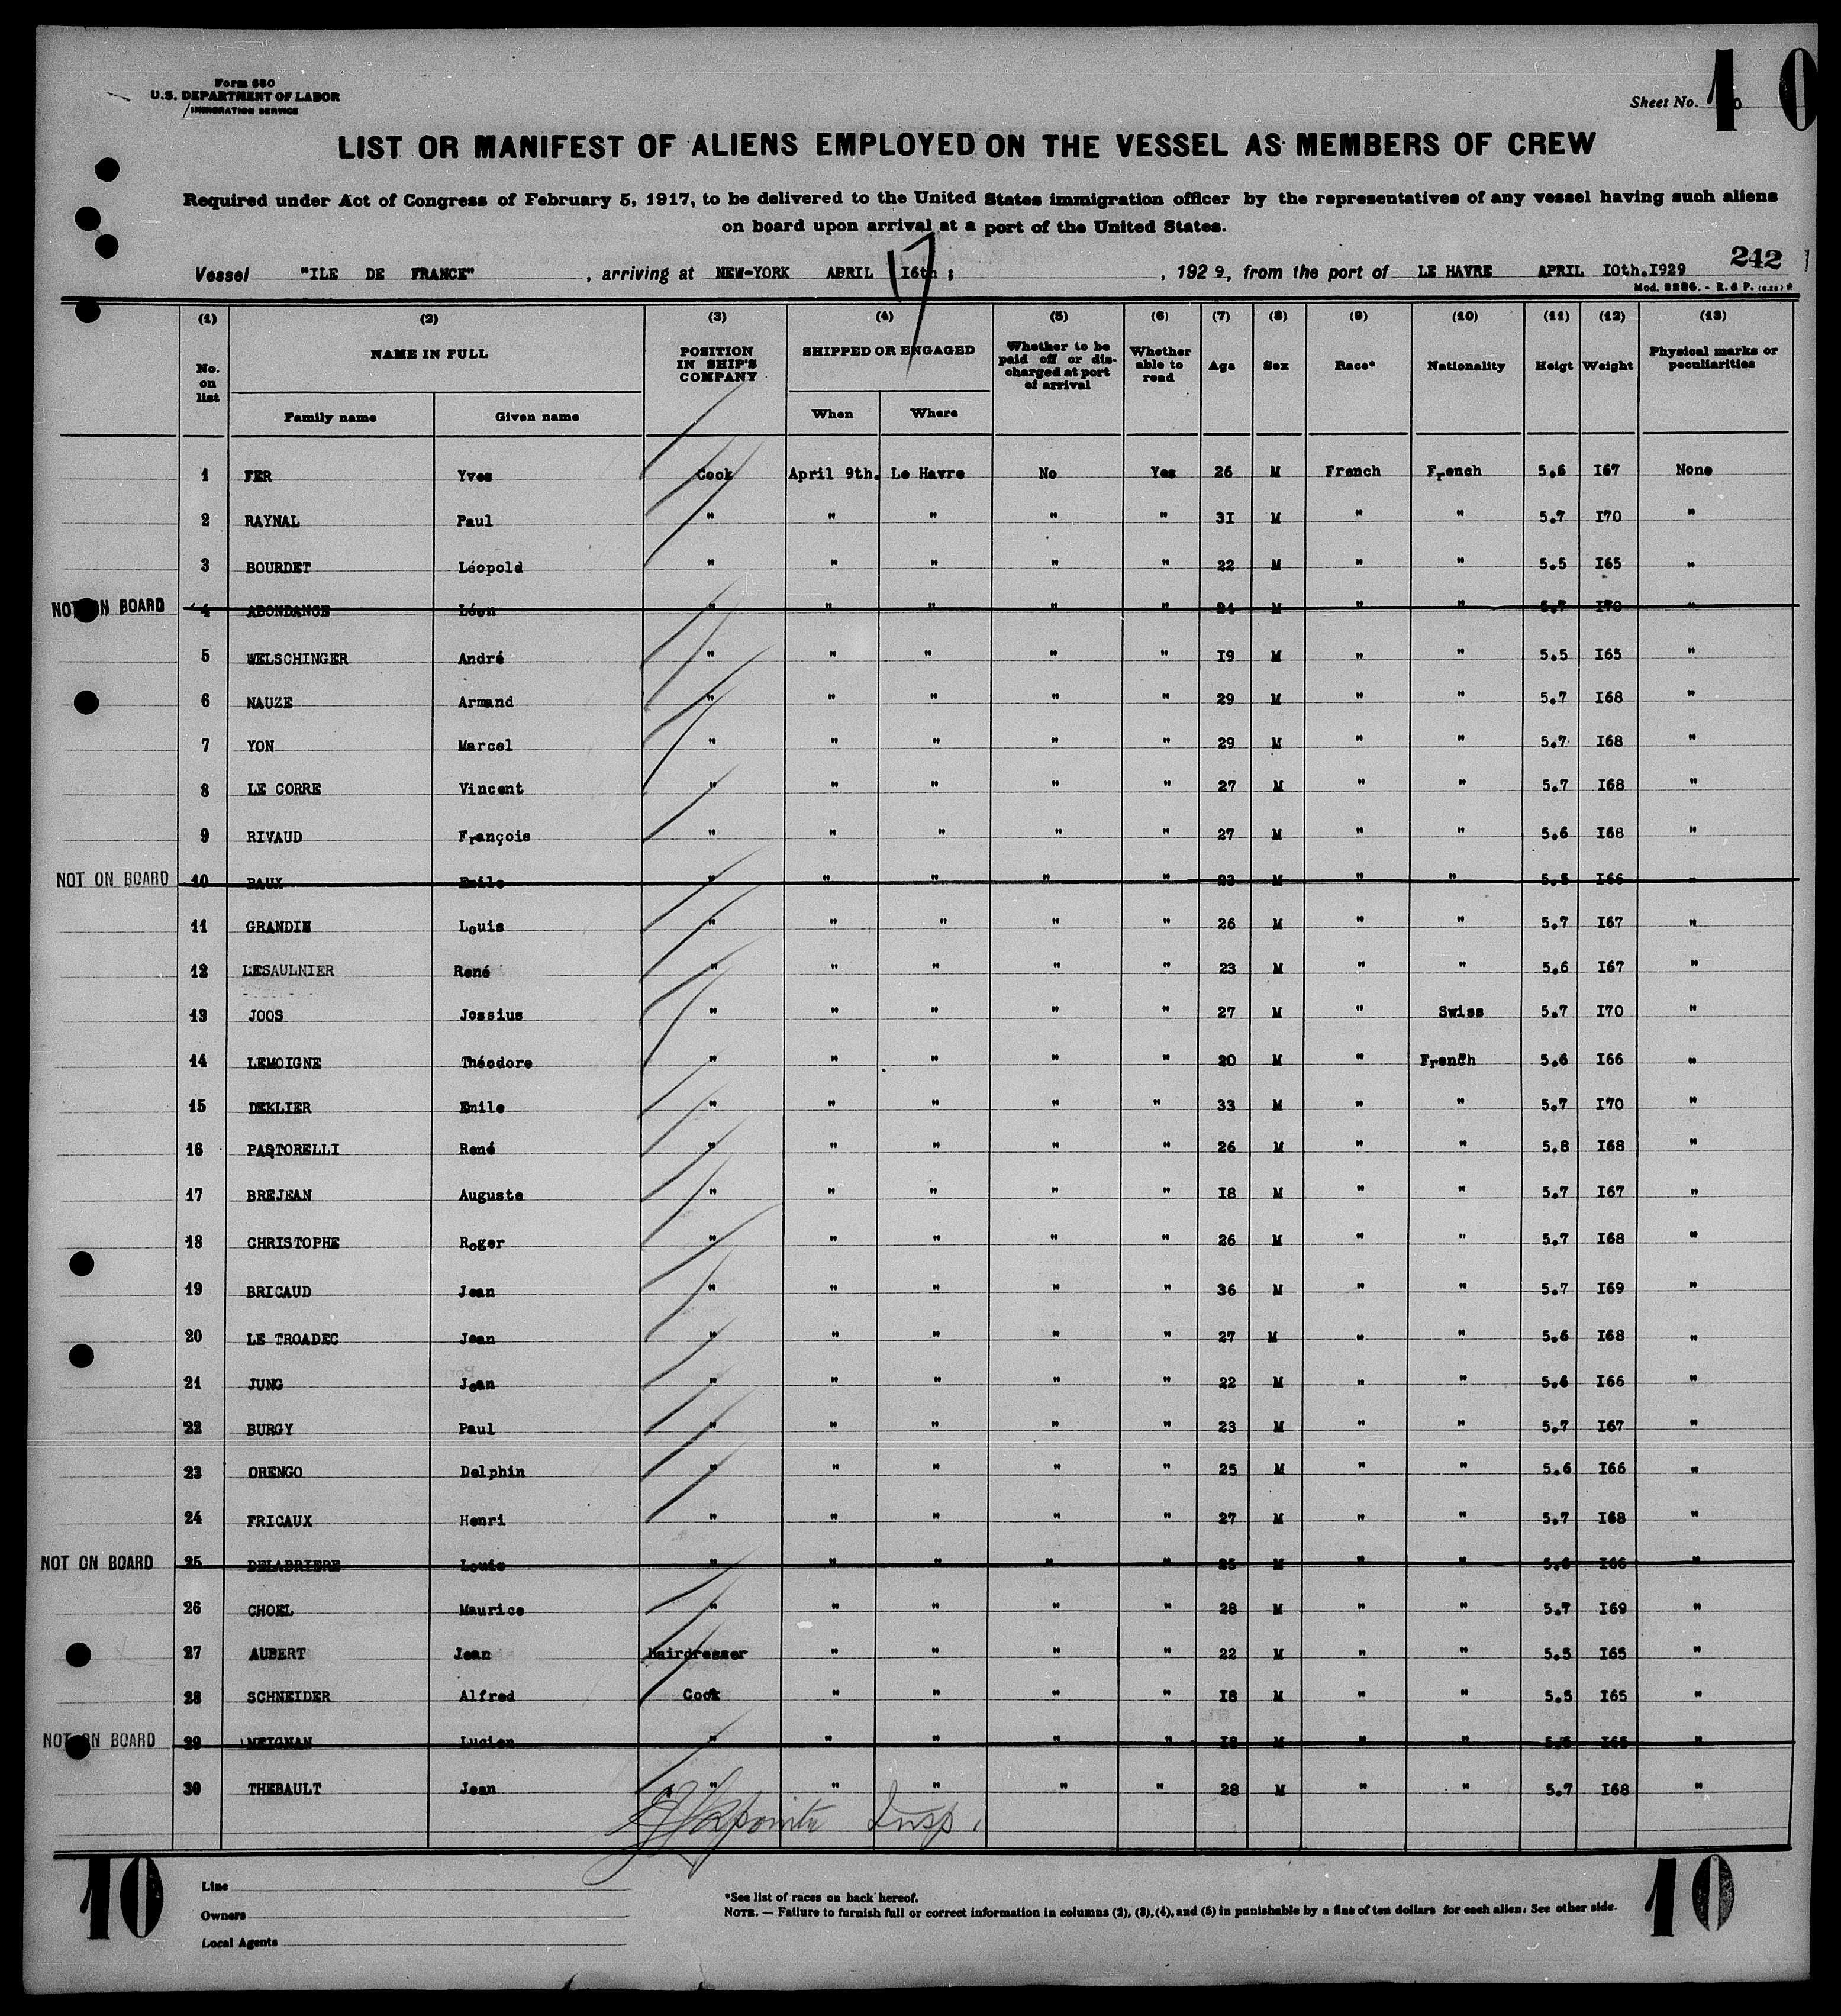 Form 680
U.S. DEPARTMENT OF LABOR
IMMIGRATION SERVICE
Sheet No. 10
LIST OR MANIFEST OF ALIENS EMPLOYED ON THE VESSEL AS MEMBERS OF CREW
Required under Act of Congress of February 5, 1917, to be delivered to the United States immigration officer by the representatives of any vessel having such aliens
on board upon arrival at a port of the United States.
242
Vessel "ILE DE FRANCE" , arriving at NEW-YORK APRIL I6th ; 17 , 192 9, from the port of LE HAVRE APRIL I0th.I929
Mod. 8286. - R. & P.
(1) (2) (3) (4) (5) (6) (7) (8) (9) (10) (11) (12) (13)
No. on list NAME IN FULL POSITION IN SHIP'S COMPANY SHIPPED OR ENGAGED Whether to be paid off or discharged at port of arrival Whether able to read Age Sex Race* Nationality Heigt Weight Physical marks or peculiarities
Family name Given name When Where
1 FER Yves Cook April 9th. Le Havre No Yes 26 M French French 5.6 I67 None
2 RAYNAL Paul " " " " " 3I M " " 5.7 I70 "
3 BOURDET Léopold " " " " " 22 M " " 5.5 I65 "
NOT ON BOARD 4 ABONDANCE Léon " " " " " 24 M " " 5.7 I70 "
5 WELSCHINGER André " " " " " I9 M " " 5.5 I65 "
6 NAUZE Armand " " " " " 29 M " " 5.7 I68 "
7 YON Marcel " " " " " 29 M " " 5.7 I68 "
8 LE CORRE Vincent " " " " " 27 M " " 5.7 I68 "
9 RIVAUD François " " " " " 27 M " " 5.6 I68 "
NOT ON BOARD 10 BAUX Emile " " " " " 23 M " " 5.5 I66 "
11 GRANDIN Louis " " " " " 26 M " " 5.7 I67 "
12 LESAULNIER René " " " " " 23 M " " 5.6 I67 "
13 JOOS Jossius " " " " " 27 M " Swiss 5.7 I70 "
14 LEMOIGNE Théodore " " " " " 20 M " French 5.6 I66 "
15 DEKLIER Emile " " " " " 33 M " " 5.7 I70 "
16 PASTORELLI René " " " " " 26 M " " 5.8 I68 "
17 BREJEAN Auguste " " " " " I8 M " " 5.7 I67 "
18 CHRISTOPHE Roger " " " " " 26 M " " 5.7 I68 "
19 BRICAUD Jean " " " " " 36 M " " 5.7 I69 "
20 LE TROADEC Jean " " " " " 27 M " " 5.6 I68 "
21 JUNG Jean " " " " " 22 M " " 5.6 I66 "
22 BURGY Paul " " " " " 23 M " " 5.7 I67 "
23 ORENGO Delphin " " " " " 25 M " " 5.6 I66 "
24 FRICAUX Henri " " " " " 27 M " " 5.7 I68 "
NOT ON BOARD 25 DELABRIERE Louis " " " " " 25 M " " 5.6 I66 "
26 CHOEL Maurice " " " " " 28 M " " 5.7 I69 "
27 AUBERT Jean Hairdresser " " " " 22 M " " 5.5 I65 "
28 SCHNEIDER Alfred Cook " " " " I8 M " " 5.5 I65 "
NOT ON BOARD 29 MEIGNAN Lucien " " " " " I8 M " " 5.5 I65 "
30 THEBAULT Jean " " " " " 28 M " " 5.7 I68 "
Lapointe Insp.
10 10
Line
Owners
Local Agents
*See list of races on back hereof.
NOTE. — Failure to furnish full or correct information in columns (2), (3), (4), and (5) in punishable by a fine of ten dollars for each alien. See other side.